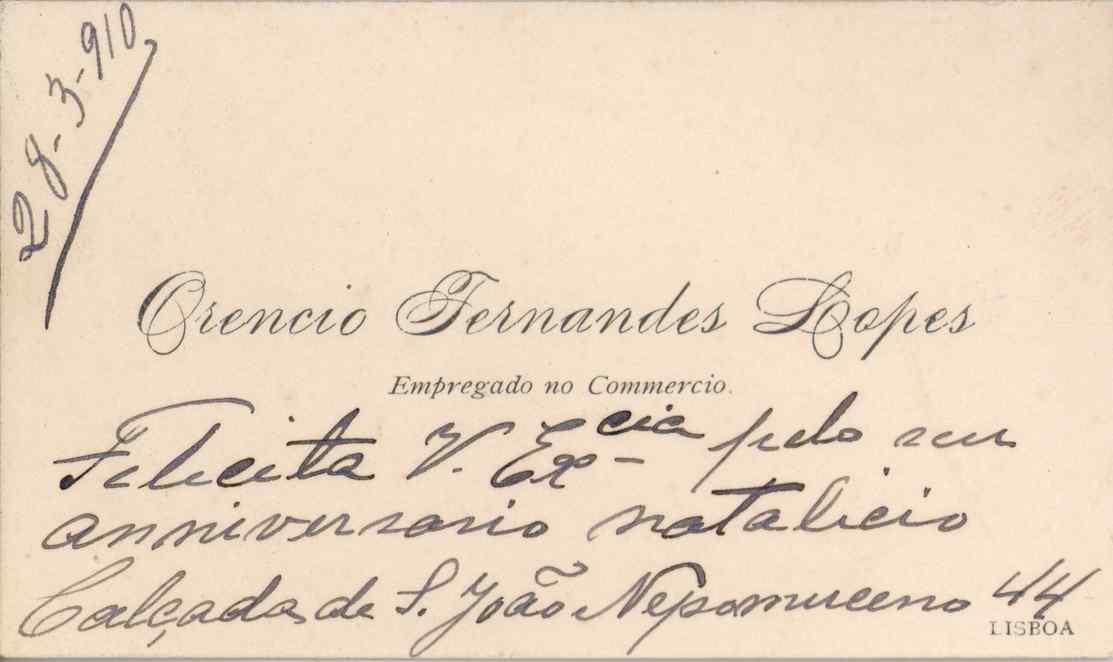 28-3-910
Orencio Fernandes Lopes
Empregado no Commercio.
Felicita V. Excia pelo seu
anniversario natalicio
Calçada de S. João Nepomuceno 44
LISBOA